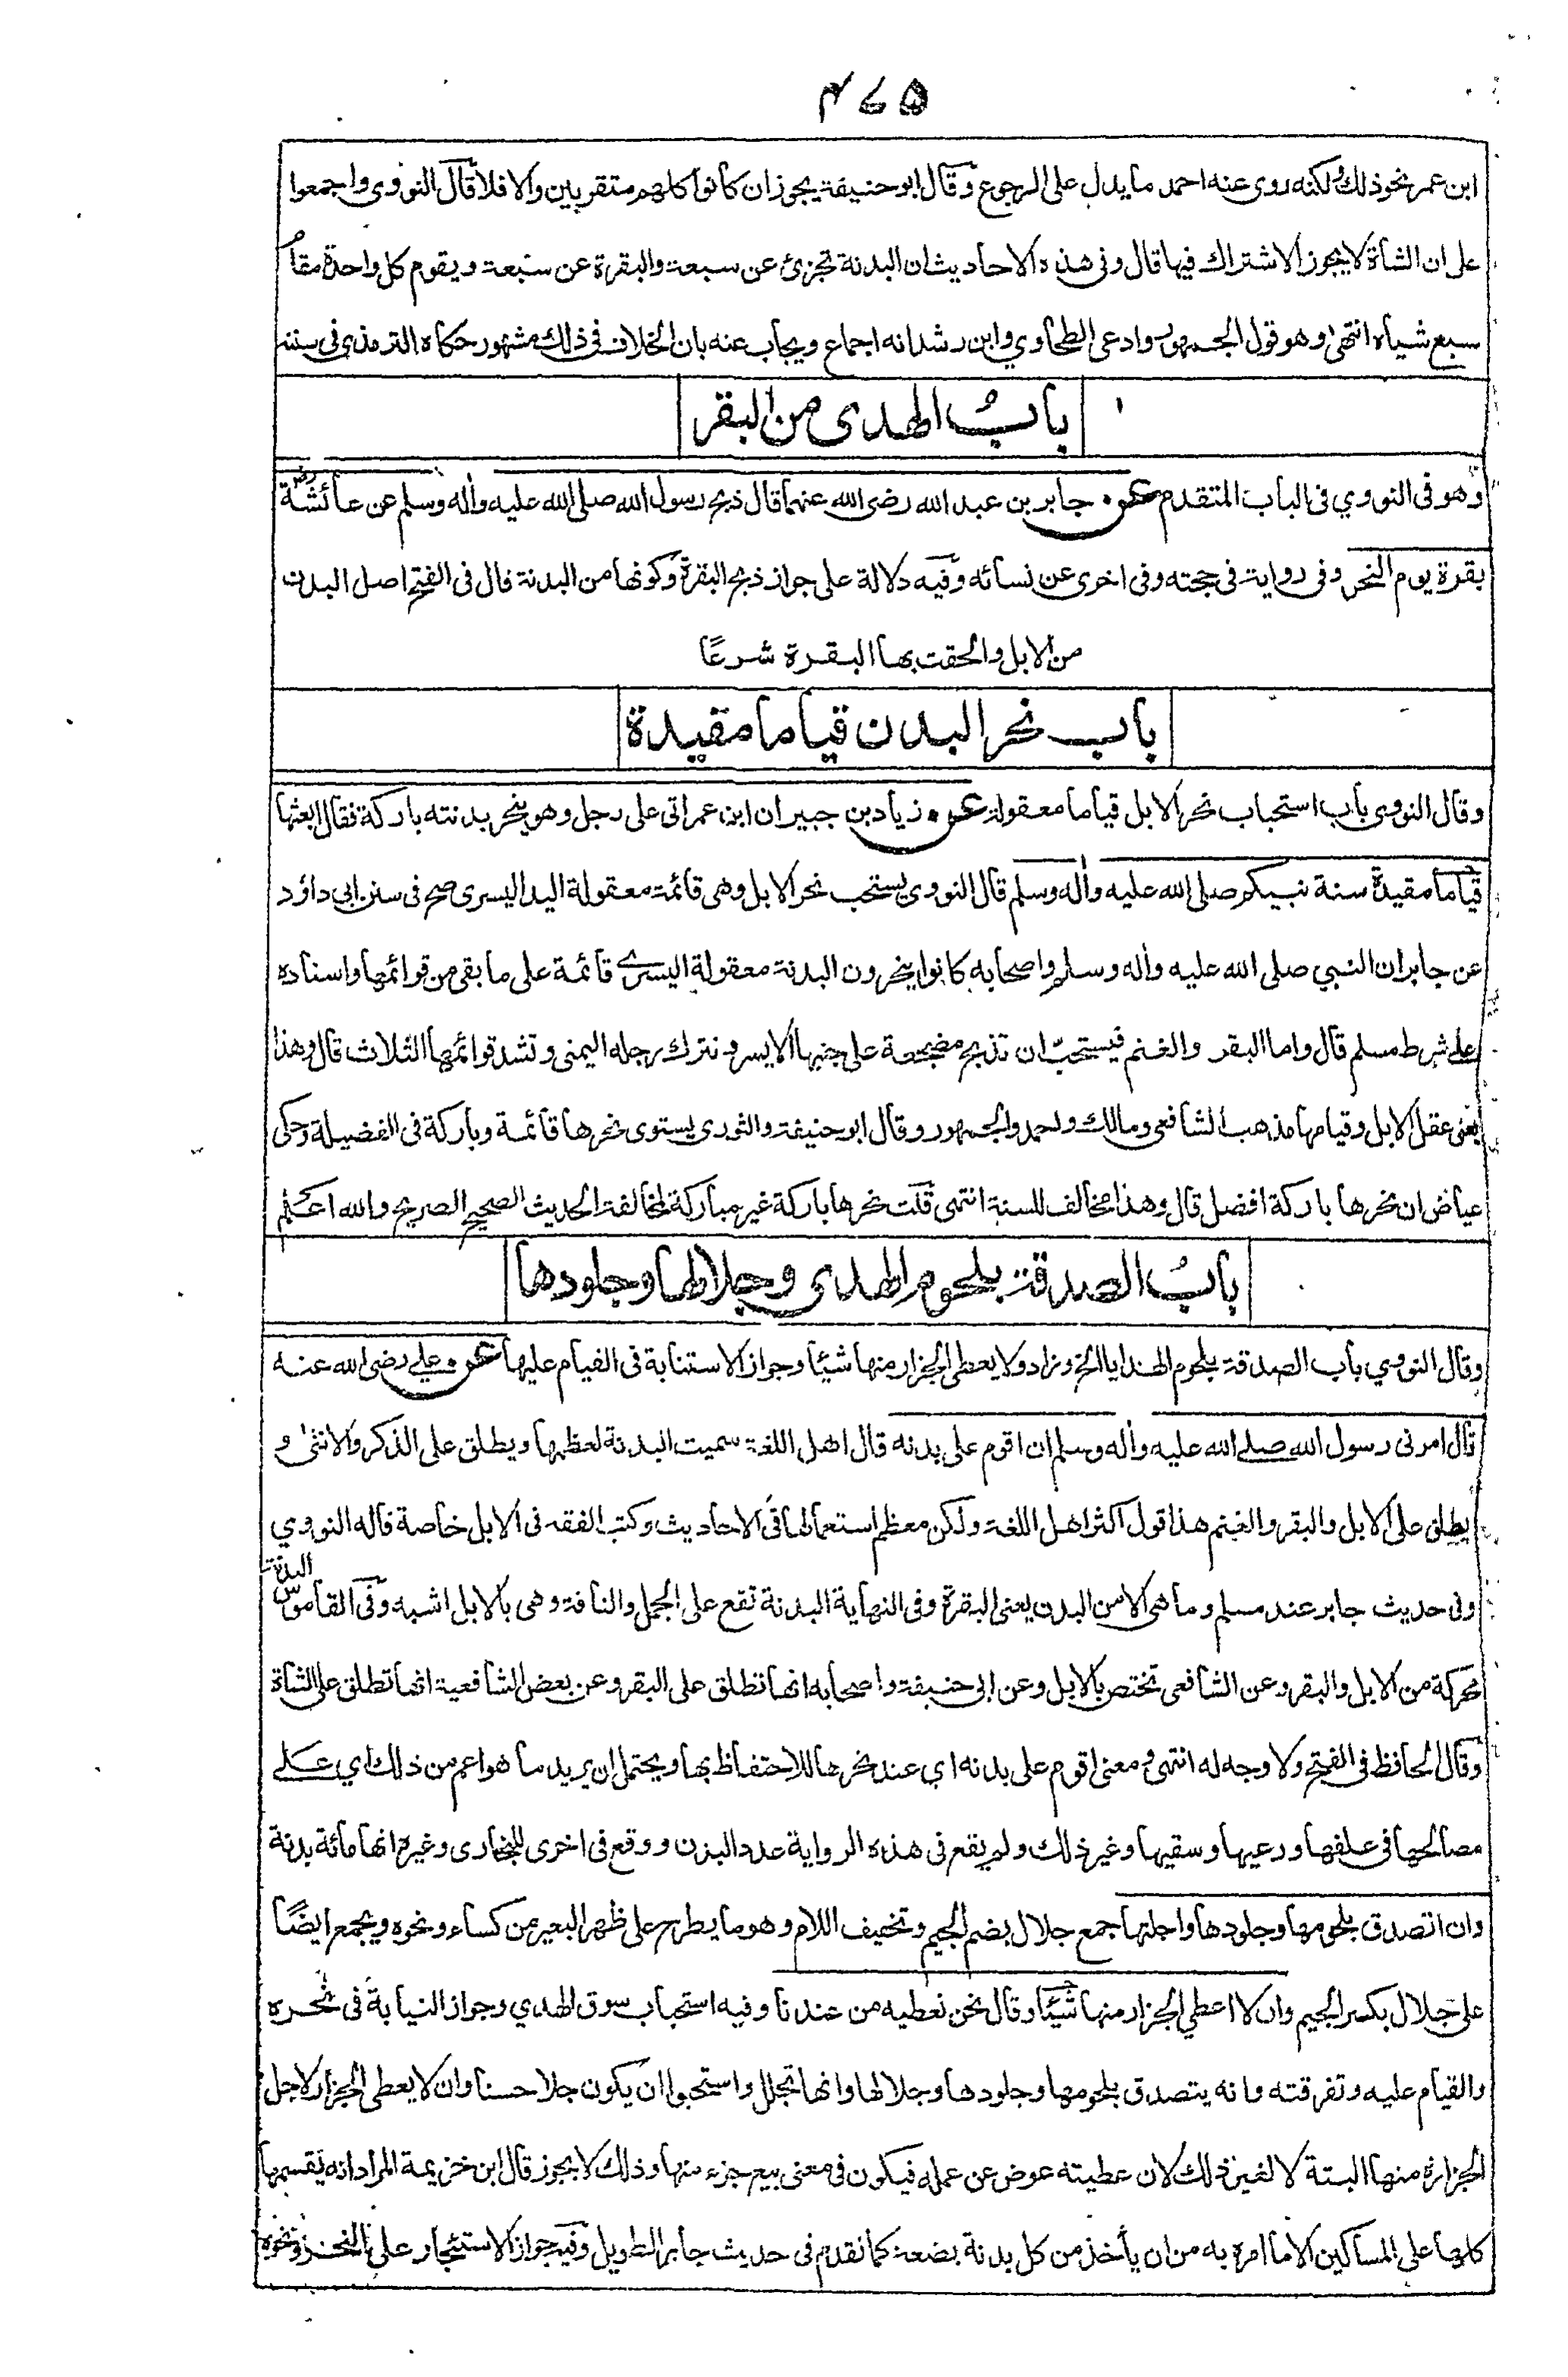 ۴۷۵
ابن عمر نحو ذلك ولكنه روى عنه احمد ما يدل على الرجوع وقال ابو حنيفة يجوز ان كانوا كلهم متقربين والا فلا قال النووى واجمعوا
على ان الشاة لا يجوز الاشتراك فيها قال وفى هذه الاحاديث ان البدنة تجزئ عن سبعة والبقرة عن سبعة ويقوم كل واحدة مقام
سبع شياه انتهى وهو قول الجمهور وادعى الطحاوي وابن رشد انه اجماع ويجاب عنه بان الخلاف فى ذلك مشهور حكاه الترمذى فى سننه
بابُ الهدى من البقر
وهو فى النووي فى الباب المتقدم عن جابر بن عبد الله رضى الله عنهما قال ذبح رسول الله صلى الله عليه واٰله وسلم عن عائشة رضـ
بقرة يوم النحر وفى رواية فى حجته وفى اخرى عن نسائه وفيه دلالة على جواز ذبح البقرة وكونها من البدنة قال فى الفتح اصل البدن
من الابل والحقت بها البقرة شرعًا
باب نحر البدن قياما مقيدة
وقال النووى باب استحباب نحر الابل قياما معقولة عن زياد بن جبير ان ابن عمر اتى على رجل وهو ينحر بدنته باركة فقال ابعثها
قياما مقيدة سنة نبيكم صلى الله عليه واٰله وسلم قال النووى يستحب نحر الابل وهى قائمة معقولة اليد اليسرى صح فى سنن ابى داؤد
عن جابر ان النبي صلى الله عليه واٰله وسلم واصحابه كانوا ينحرون البدنة معقولة اليسرى قائمة على ما بقى من قوائمها واسناده
على شرط مسلم قال واما البقر والغنم فيستحبّ ان تذبح مضجعة على جنبها الايسر وتترك رجله اليمنى وتشد قوائمها الثلاث قال وهذا
يعنى عقل الابل وقيامها مذهب الشافعى ومالك واحمد والجمهور وقال ابو حنيفة والثورى يستوى نحرها قائمة وباركة فى الفضيلة وحكى
عياض ان نحرها باركة افضل قال وهذا مخالف للسنة انتهى قلت نحرها باركة غير مباركة لمخالفة الحديث الصحيح الصريح والله اعلم
بابُ الصدقة بلحوم الهدى وجلالها وجلودها
وقال النووي باب الصدقة بلحوم الهدايا الخ وزاد ولا يعطى الجزار منها شيئا وجواز الاستنابة فى القيام عليها عن على رضى الله عنه
قال امرنى رسول الله صلى الله عليه واٰله وسلم ان اقوم على بدنه قال اهل اللغة سميت البدنة لعظمها ويطلق على الذكر والانثى و
يطلق على الابل والبقر والغنم هذا قول اكثر اهل اللغة ولكن معظم استعمالها فى الاحاديث وكتب الفقه فى الابل خاصة قاله النووي
وفى حديث جابر عند مسلم وما هى الا من البدن يعنى البقرة وفى النهاية البدنة تقع على الجمل والناقة وهى بالابل اشبه وفى القاموس البدنة
محركة من الابل والبقر وعن الشافعى تختص بالابل وعن ابى حنيفة واصحابه انها تطلق على البقر وعن بعض الشافعية انها تطلق على الشاة
وقال الحافظ فى الفتح ولا وجه له انتهى ومعنى اقوم على بدنه اي عند نحرها للاحتفاظ بها ويحتمل ان يريد ما هو اعم من ذلك اي على
مصالحها فى علفها ورعيها وسقيها وغير ذلك ولم يقع فى هذه الرواية عدد البدن ووقع فى اخرى للبخارى وغيره انها مائة بدنة
وان اتصدق بلحومها وجلودها واجلتها جمع جلال بضم الجيم وتخفيف اللام وهو ما يطرح على ظهر البعير من كساء ونحوه ويجمع ايضًا
على جلال بكسر الجيم وان لا اعطي الجزار منها شيئا وقال نحن نعطيه من عندنا وفيه استحباب سوق الهدي وجواز النيابة فى نحره
والقيام عليه وتفرقته وانه يتصدق بلحومها وجلودها وجلالها وانها تجلل واستحبوا ان يكون جلا حسنا وان لا يعطى الجزار لاجل
الجزارة منها البتة لا لغير ذلك لان عطيته عوض عن عمله فيكون فى معنى بيع جزء منها وذلك لا يجوز قال ابن خزيمة المراد انه يقسمها
كلها على المساكين الا ما امره به من ان يأخذ من كل بدنة بضعة كما تقدم فى حديث جابر الطويل وفيه جواز الاستئجار على النحر ونحوه